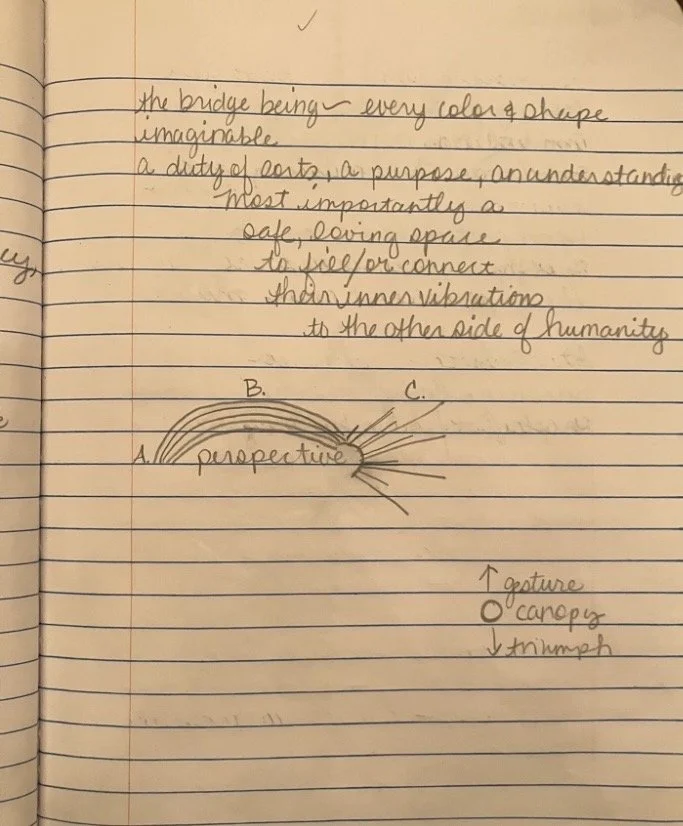 the bridge being~ every color & shape
imaginable
a duty of sorts, a purpose, an understanding
Most importantly a
safe, loving space
to feel/or connect
their inner vibrations
to the other side of humanity
B. C.
A. perspective
↑ gesture
O canopy
↓ triumph